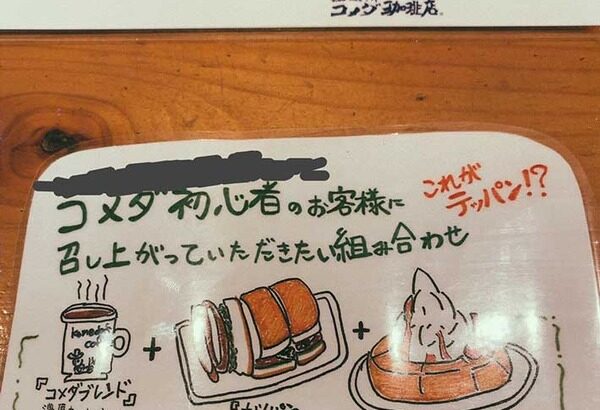 コメダ珈琲店
コメダ初心者のお客様に
これが
テッパン!?
召し上がっていただきたい組み合わせ
Komeda's
+
+
『コメダブレンド』